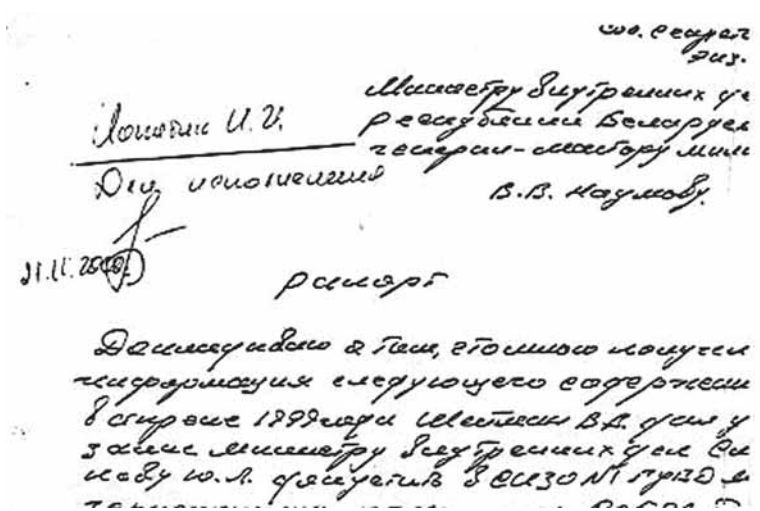 сов. секрет
экз.
Министру внутренних де
республики Беларусь
генерал-майору мили
В.В. Наумову.
Лопатик И.И.
Для исполнения
21.11.2000.
рапорт
Докладываю о том, что мною получен
информация следующего содержани
в апреле 1999 года Шейман В.В. дал у
зание министру внутренних дел Си
кову Ю.Л. допустить в СИЗО №1 ГУВД